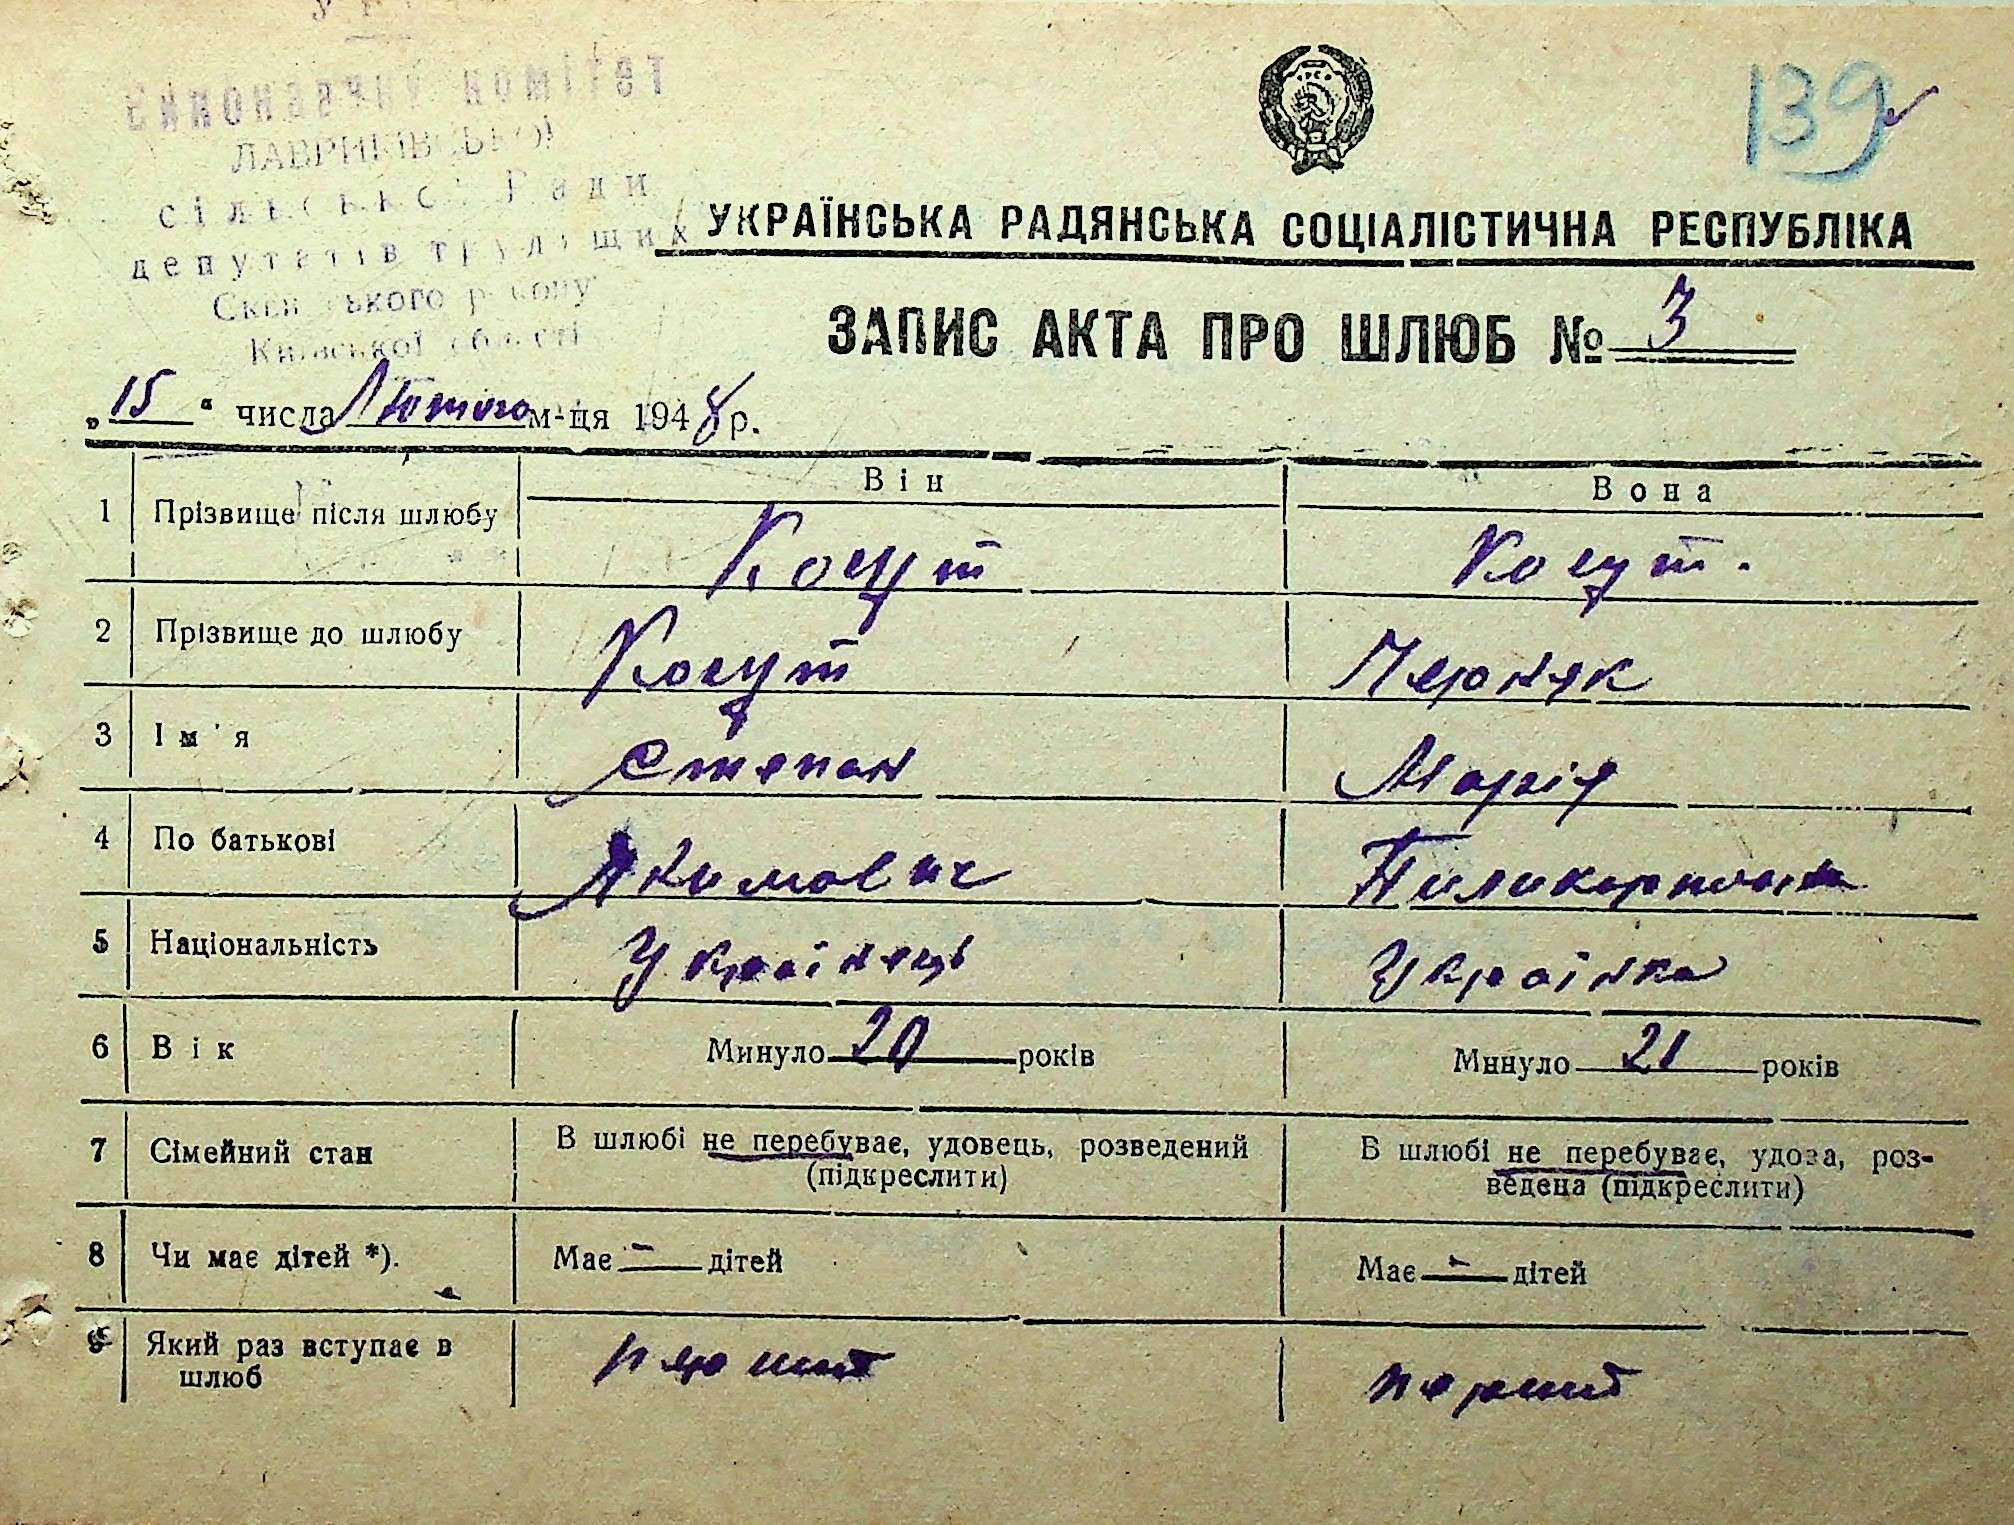 Виконавчий комітет
ЛАВРИКІВСЬКОЇ
сільської Ради
депутатів трудящих
Сквирського району
Київської області
139
УКРАЇНСЬКА РАДЯНСЬКА СОЦІАЛІСТИЧНА РЕСПУБЛІКА
ЗАПИС АКТА ПРО ШЛЮБ № 3
„15“ числа Лютого м-ця 1948 р.
Він Вона
1 Прізвище після шлюбу Коцут Коцут.
2 Прізвище до шлюбу Коцут Черняк
3 Ім'я Степан Марія
4 По батькові Якимович
5 Національність Українець Українка
6 Вік Минуло 20 років Минуло 21 років
7 Сімейний стан В шлюбі не перебуває, удовець, розведений В шлюбі не перебуває, удова, роз-
(підкреслити) ведена (підкреслити)
8 Чи має дітей *). Має - дітей Має - дітей
9 Який раз вступає в
шлюб перший перший